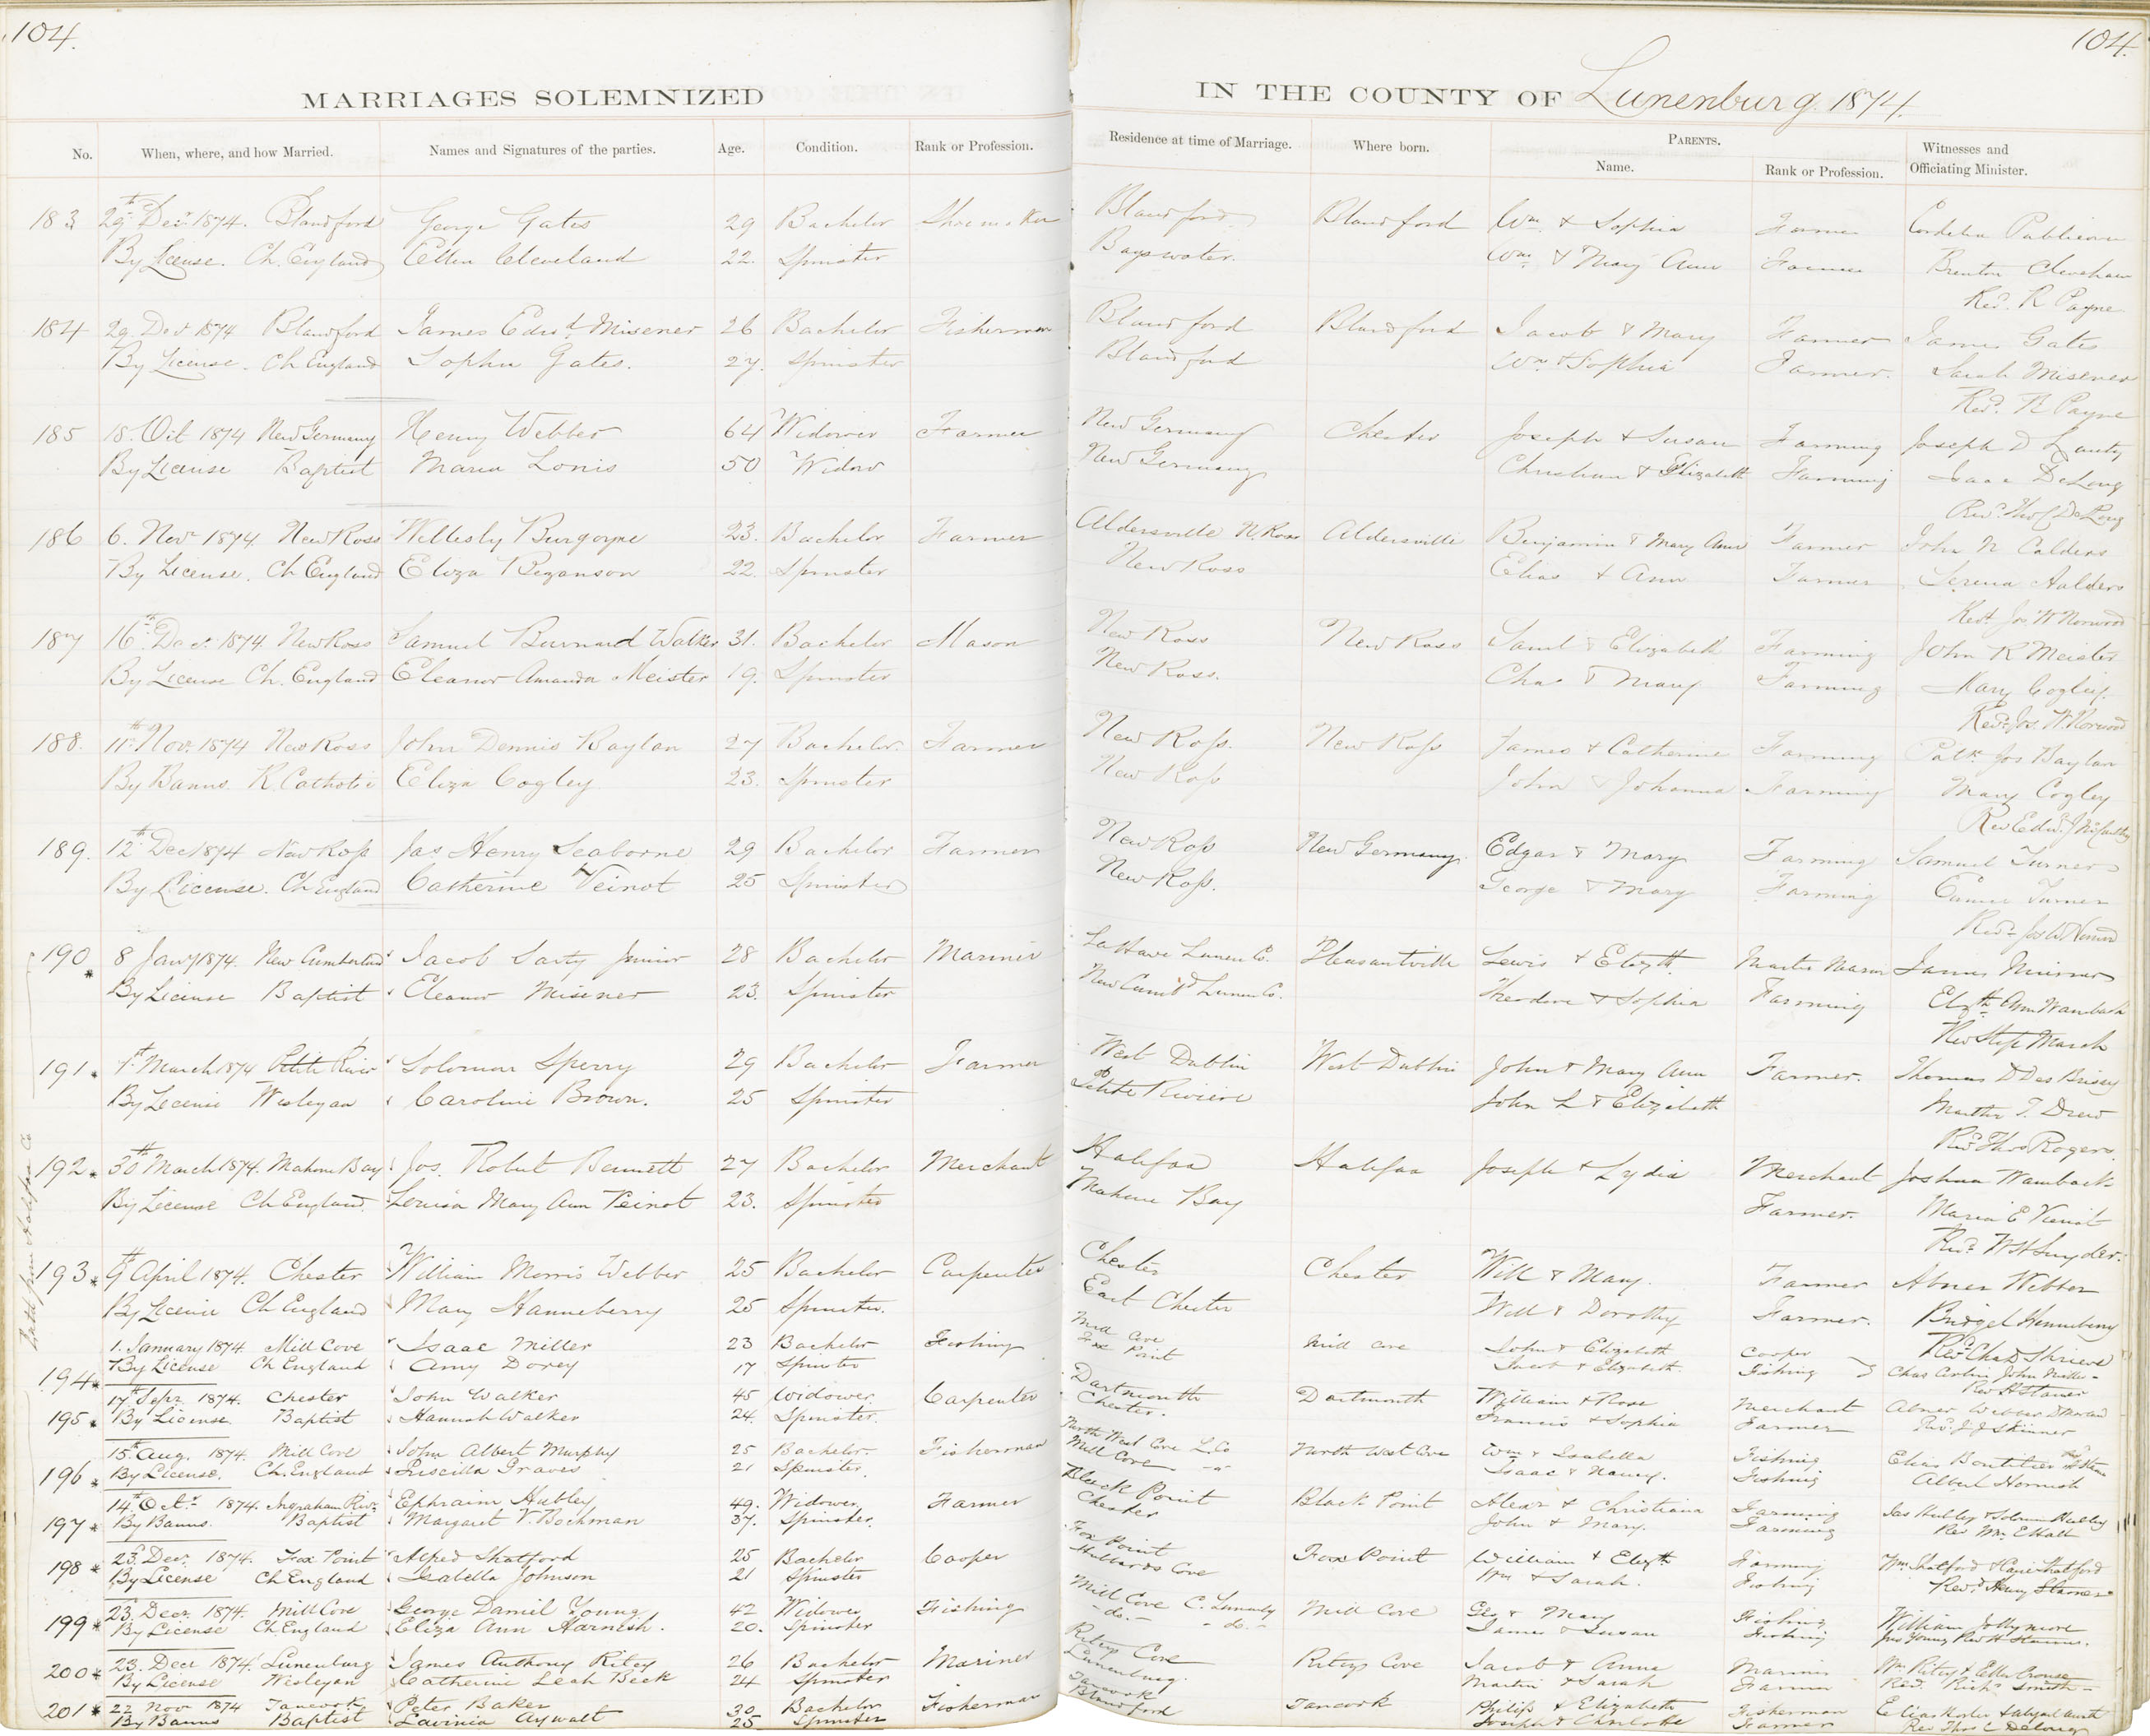 104.
104.
MARRIAGES SOLEMNIZED IN THE COUNTY OF Lunenburg 1874.
No. When, where, and how Married. Names and Signatures of the parties. Age. Condition. Rank or Profession. Residence at time of Marriage. Where born. PARENTS. Name. Rank or Profession. Witnesses and Officiating Minister.
183 29th Decr 1874. Blandford George Gates 29 Bachelor Shoemaker Blandford Blandford Wm & Sophia Farmer Cordelia Publicover
By License. Ch. England Ellen Cleveland 22. Spinster Bayswater. Wm & Mary Ann Farmer Brenton
Revd. R Payne
184 29 Decr 1874 Blandford James Edwd. Misener 26 Bachelor Fisherman Blandford Blandford Jacob & Mary Farmer James Gates
By License. Ch England Sophia Gates. 27. Spinster Blandford Wm & Sophia Farmer. Sarah Misener
Revd. R Payne
185 18. Oct 1874 New Germany Henry Webber 64 Widower Farmer New Germany Chester Joseph & Susan Farming Joseph D
By License Baptist Maria Lonis 50 Widow New Germany Christian & Elizabeth Farming Isaac DeLong
Revd. Thos C DeLong
186 6. Novr 1874. New Ross Willesly Burgoyne 23. Bachelor Farmer Aldersville N. Ross Aldersville Benjamin & Mary Ann Farmer John N Calders
By License. Ch England Eliza Bezanson 22. Spinster New Ross Elias & Ann Farmer Serena Aalders
Revd. Jos W Norwood
187 16th Decr. 1874. New Ross Samuel Burnard Walker 31. Bachelor Mason New Ross New Ross Saml & Elizabeth Farming John R Meister
By License Ch. England Eleanor Amanda Meister 19. Spinster New Ross. Chas & Mary Farming Mary Cogley.
Revd. Jos. W Norwood
188. 11th Nov. 1874 New Ross John Dennis Baylan 27 Bachelor. Farmer New Ross. New Ross James & Catherine Farming Patk Jos Baylan
By Banns. R. Catholic Eliza Cogley 23. Spinster New Ross John & Johanna Farming Mary Cogley
Rev Edwd. J McCarthy
189. 12th Dec 1874 New Ross Jas Henry Seaborne 29 Bachelor Farmer New Ross New Germany. Edgar & Mary Farming Samuel Turner
By License. Ch England Catherine Veinot 25 Spinster New Ross. George & Mary Farming Turner
Revd. Jos W Norwood
190 * 8 Jany 1874. New Cumberland Jacob Sarty Junior 28 Bachelor Mariner LaHave Lunen Co. Pleasantville Lewis & Elizth. Master Mason James Misener
By License Baptist Eleanor Misener 23. Spinster New Cumbd Lunen Co. Theodore & Sophia Farming Elizth Ann Wambach
Rev Steph March
191. 1st March 1874 Petite River Solomon Sperry 29 Bachelor Farmer West Dublin West Dublin John & Mary Ann Farmer. Thomas D Des Brisay
By License Wesleyan Caroline Brown. 25 Spinster Petite Riviere John L & Elizabeth Martha T. Drew
Revd. Thos Rogers.
192. 30th March 1874. Mahone Bay Jos. Robert Bennett 27 Bachelor Merchant Halifax Halifax Joseph & Lydia Merchant Joshua Wambach
By License Ch England. Louisa Mary Ann Veinot 23. Spinster Mahone Bay Farmer. Maria E Vienot
Revd. W H Snyder.
193. 9th April 1874. Chester William Morris Webber 25 Bachelor Carpenter Chester Chester Will & Mary. Farmer Abner Webber
By License Ch England Mary Hanneberry 25 Spinster. East Chester Will & Dorothy Farmer. Bridget Hanneberry
Revd Chas Shrieve
194 * 1. January 1874 Mill Cove Isaac Miller 23 Bachelor Fishing Mill Cove Mill Cove John & Elizabeth Cooper
By License Ch England Amy Dorey 17 Spinster Fox Point Jacob & Elizabeth. Fishing Chas John Miller
Rev H Stamer
195 * 17th Sepr 1874. Chester John Walker 45 Widower. Carpenter Dartmouth Dartmouth William & Rose Merchant Abner Webber
By License. Baptist Hannah Walker 24. Spinster. Chester. Francis & Sophia Farmer Revd. J J Skinner
196 * 15th Aug. 1874. Mill Cove John Albert Murphy 25 Bachelor Fisherman North West Cove L. Co North West Cove Wm & Isabella Fishing Elias Boutilier
By License. Ch. England Priscilla Graves 21 Spinster. Mill Cove Isaac & Nancy. Fishing Albert Hornish
197 * 14th Octr 1874. Ingraham Rivr. Ephraim Hubley 49. Widower Farmer Black Point Black Point Alexr & Christiana Farming Jas Hubley & Solomon Hubley
By Banns. Baptist Margaret V. Bockman 37. Spinster. Chester John & Mary. Farming Rev Wm E Hall
198 * 23. Decr. 1874. Fox Point Alfred Shatford 25 Bachelor Cooper Fox Point Fox Point William & Elizth. Farming Wm Shatford & Shatford
By License Ch England Isabella Johnson 21 Spinster Hubbards Cove Wm & Sarah. Fishing Revd. Henry Stamer
199 * 23. Decr. 1874. Mill Cove George Daniel Young 42 Widower Fishing Mill Cove C. Lunenbg Mill Cove Geo & Mary Fishing William Jollymore
By License Ch. England Eliza Ann Harnish. 20. Spinster - do. - - do. - James & Susan Fishing Jas Young Rev H Stamer.
200 * 23. Decr 1874. Lunenburg James Anthony Ritcy 26 Bachelor Mariner Ritcys Cove Ritcys Cove Jacob & Anna Mariner Wm Ritcy & Ellen Crouse
By License Wesleyan Catherine Leah Beck 24 Spinster Lunenburg. Martin & Sarah Farmer Revd. Richd Smith
201 * 22 Nov 1874 Tancook Peter Baker 30. Bachelor Fisherman Tancook Tancook Philip & Elizabeth Fisherman Elias
By Banns Baptist Lavinia Aywalt 25 Spinster Blandford Joseph & Charlotte Farmer Rev Thos C Delong